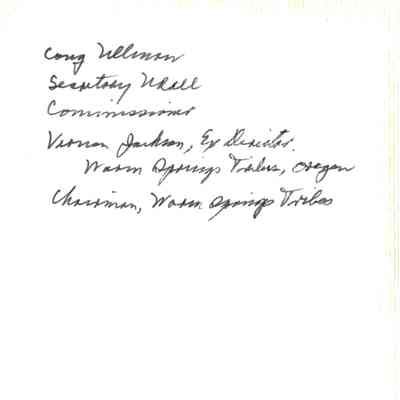 Cong Ullman
Secretary Udall
Commissioner
Vernon Jackson, Ex Director.
Warm Springs Tribes, Oregon
Chairman, Warm Springs Tribes